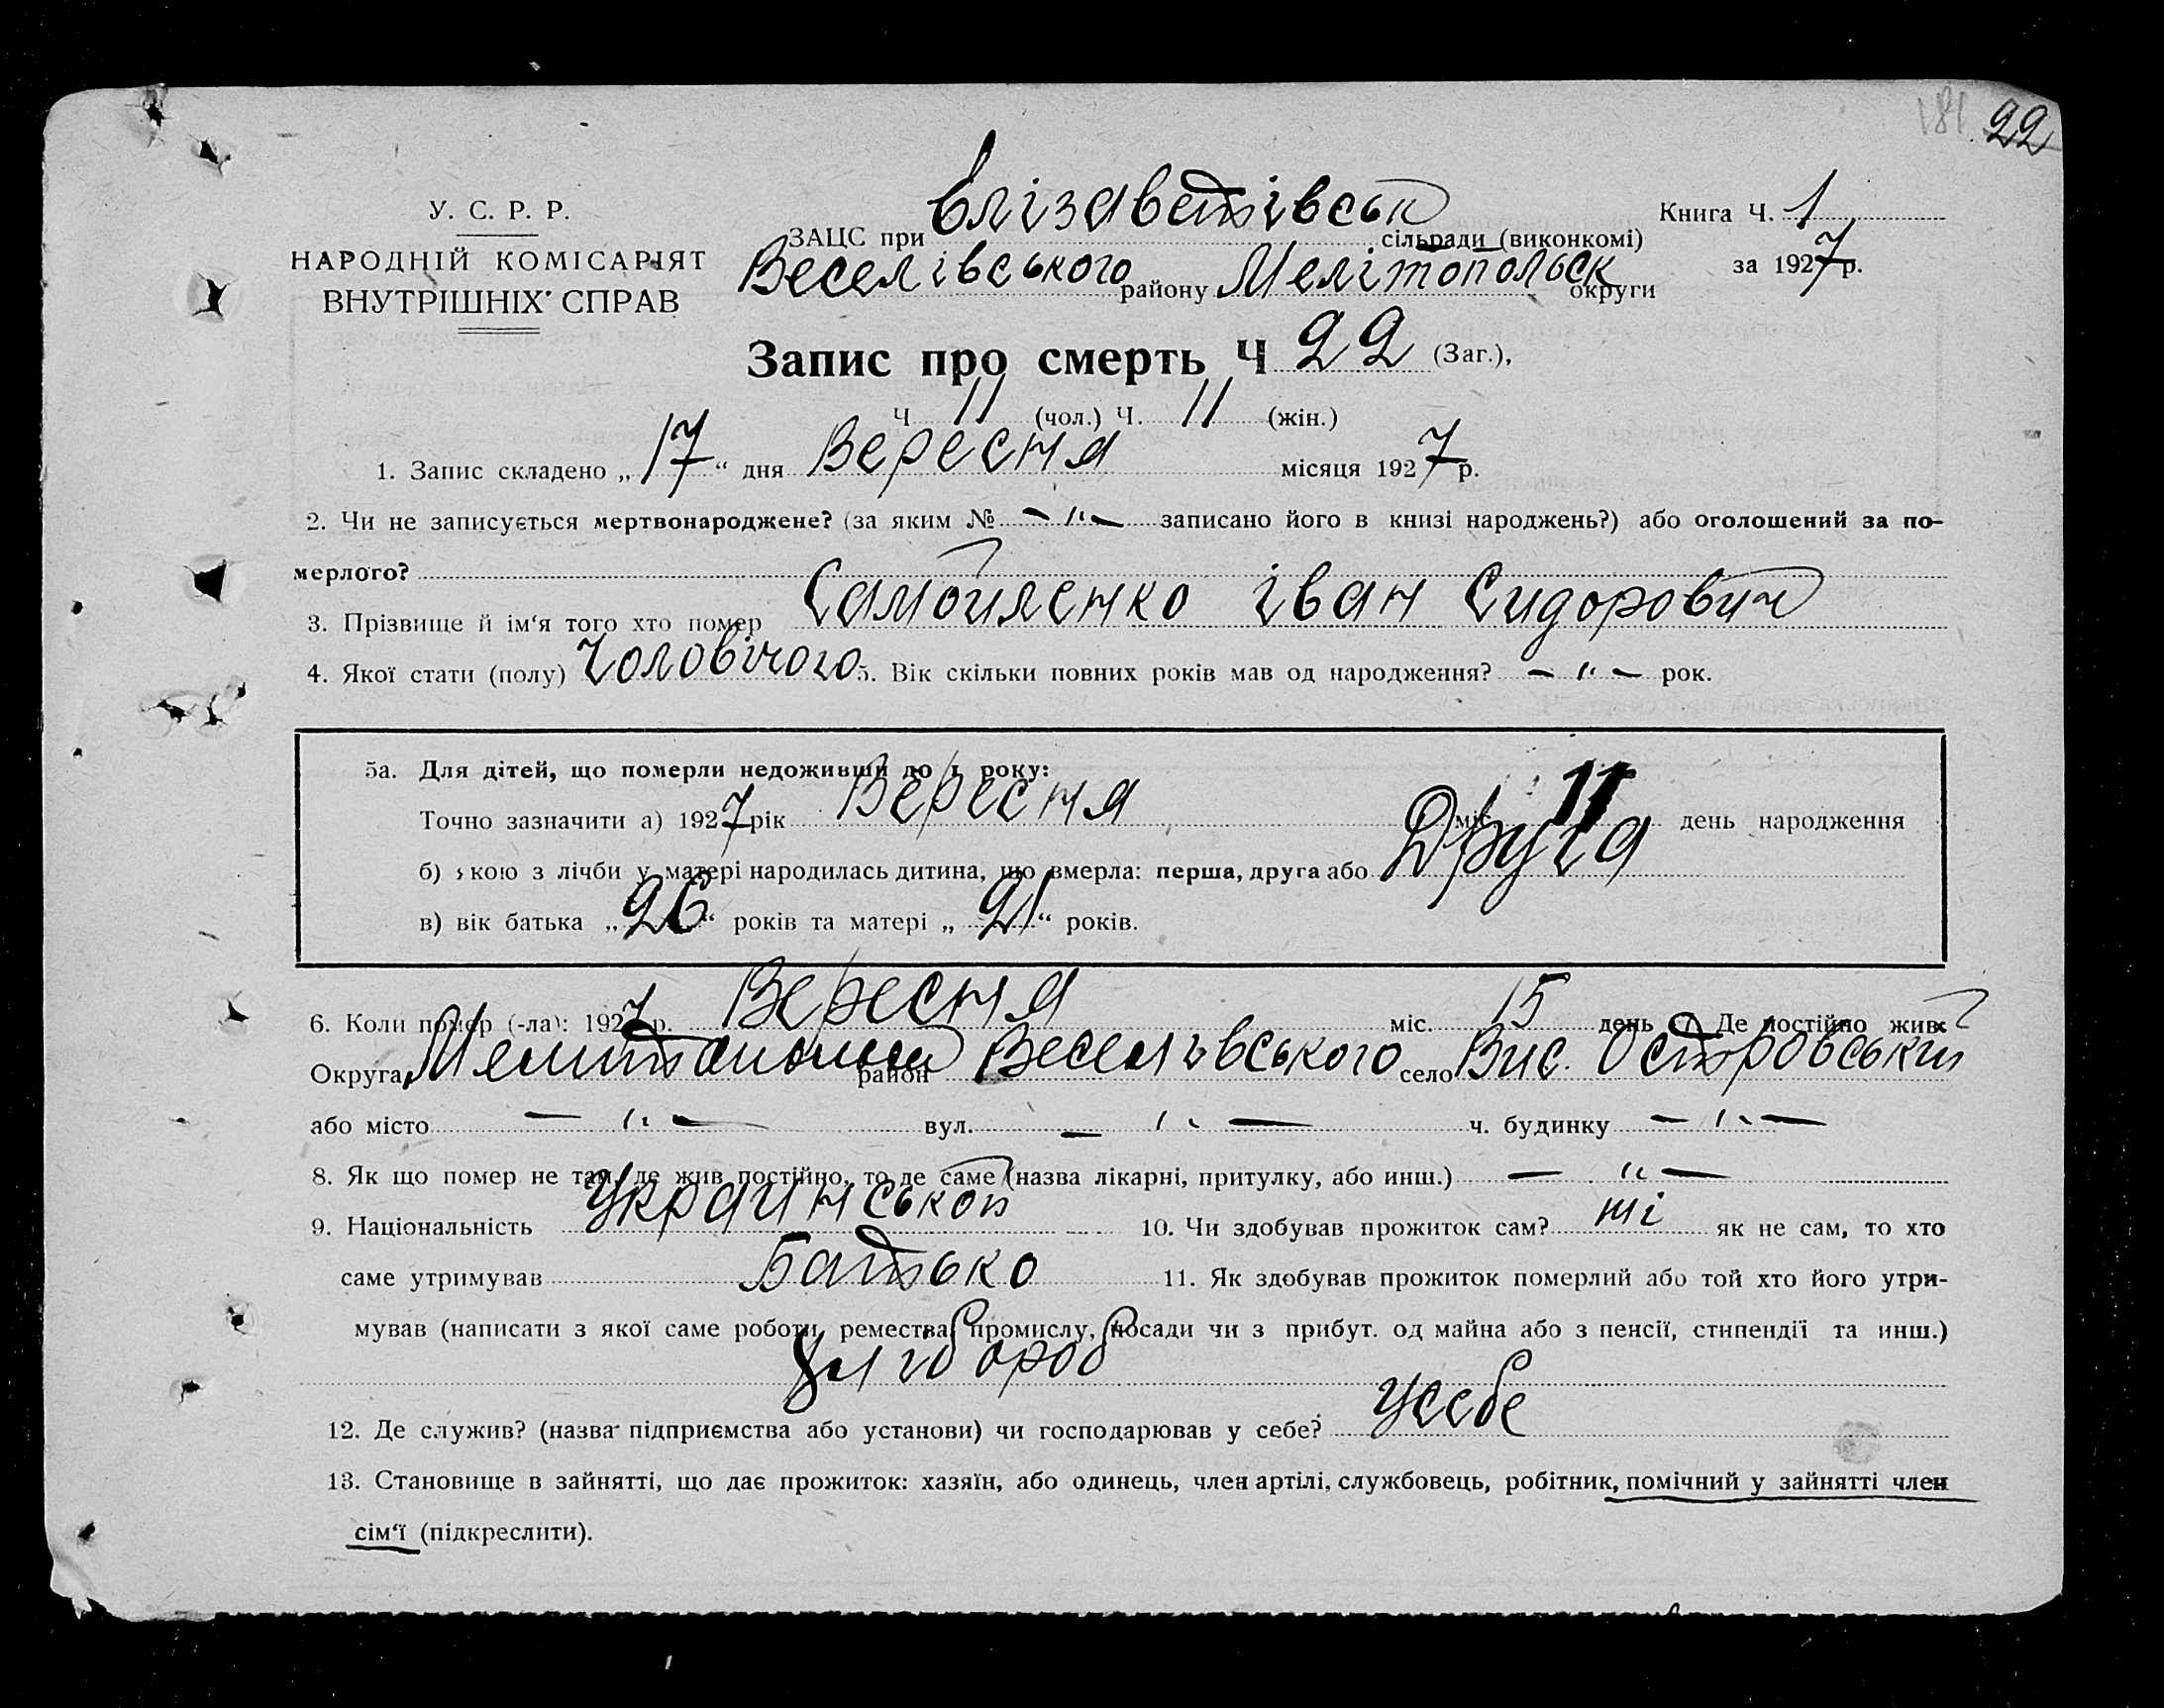 181 22
У. С. Р. Р.
НАРОДНІЙ КОМІСАРІЯТ
ВНУТРІШНІХ СПРАВ
ЗАЦС при Єлізаветівськ сільради (виконкомі)
Веселівського району Мелітопольск округи
Книга Ч. 1
за 1927 р.
Запис про смерть Ч 22 (Заг.),
Ч 11 (чол.) Ч. 11 (жін.)
1. Запис складено „17“ дня Вересня місяця 1927 р.
2. Чи не записується мертвонароджене? (за яким № -"- записано його в книзі народжень?) або оголошений за по-
мерлого?
3. Прізвище й ім'я того хто помер Самойленко Іван Сидорович
4. Якої стати (полу) Чоловічого 5. Вік скільки повних років мав од народження? -"- рок.
5а. Для дітей, що померли недоживши до 1 року:
Точно зазначити а) 1927 рік Вересня міс. 11 день народження
б) якою з лічби у матері народилась дитина, що вмерла: перша, друга або Друга
в) вік батька „26“ років та матері „21“ років.
6. Коли помер (-ла): 1927 р. Вересня міс. 15 день 7. Де постійно жив:
Округа район Веселівського село Вис. Островський
або місто -"- вул. -"- ч. будинку -"-
8. Як що помер не там, де жив постійно, то де саме (назва лікарні, притулку, або инш.) -"-
9. Національність Украинськой 10. Чи здобував прожиток сам? ні як не сам, то хто
саме утримував Батько 11. Як здобував прожиток померлий або той хто його утри-
мував (написати з якої саме роботи, ремества, промислу, посади чи з прибут. од майна або з пенсії, стипендії та инш.)
Хлібороб
12. Де служив? (назва підприємства або установи) чи господарював у себе? усебе
13. Становище в зайнятті, що дає прожиток: хазяїн, або одинець, член артілі, службовець, робітник, помічний у зайнятті член
сім'ї (підкреслити).